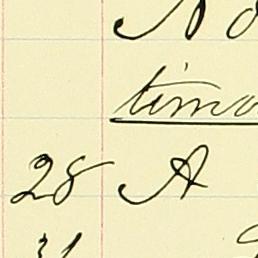 No
timo
28 A
31